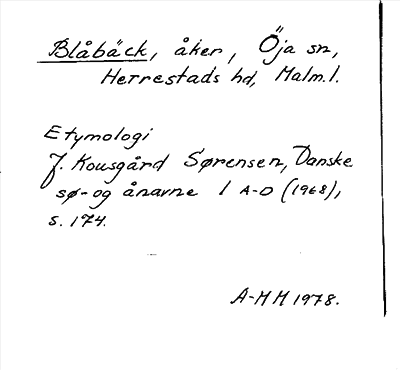 Blåbäck, åker, Öja sn,
Herrestads hd, Malm. l.
Etymologi
J. Kousgård Sørensen, Danske
sø- og ånavne 1 A-D (1968),
s. 174.
A-MM 1978.